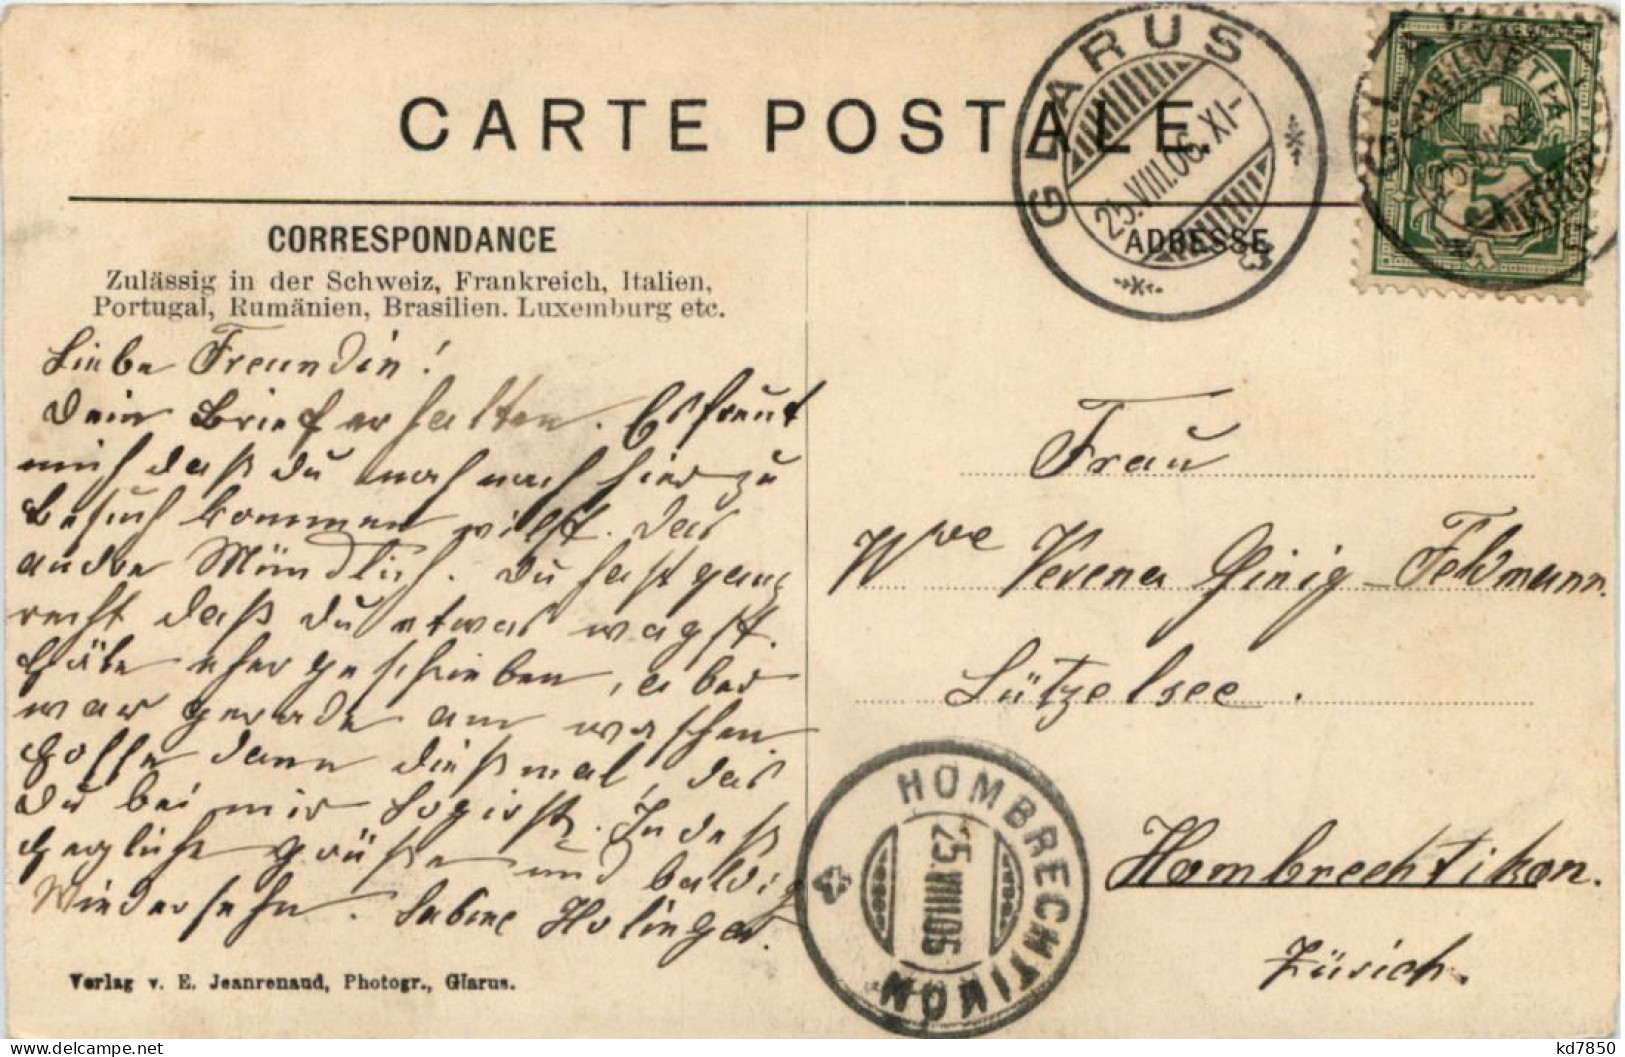 CARTE POSTALE
GLARUS
25.VIII.06.XI-
HELVETIA
5
CORRESPONDANCE
ADRESSE
Zulässig in der Schweiz, Frankreich, Italien,
Portugal, Rumänien, Brasilien. Luxemburg etc.
Liebe Freundin!
Dein Brief erhalten. Es freut
mich daß du noch nach hier zu
Besuch kommen willst. Das
andre Mündlich. Du hast ganz
recht daß du etwas wagst.
Hätte eher geschrieben, aber
war gerade am waschen.
Hoffe dann dießmal, das
Du bei mir logierst. Indeß
Herzliche Grüße und baldig
Wiedersehn. Holinger.
Frau
Wve Verena Feldmann.
Lützelsee.
Hombrechtikon.
Zürich.
HOMBRECHTIKON
25.VIII.06
Verlag v. E. Jeanrenaud, Photogr., Glarus.
kd7850